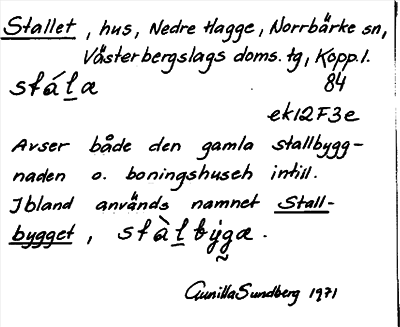 Stallet, hus, Nedre Hagge, Norrbärke sn,
Västerbergslags doms. tg, Kopp. l.
stá̱la 84
ek12F3e
Avser både den gamla stallbygg-
naden o. boningshuset intill.
Ibland används namnet Stall-
bygget, stàl̲bẏga̰.
Gunilla Sundberg 1971